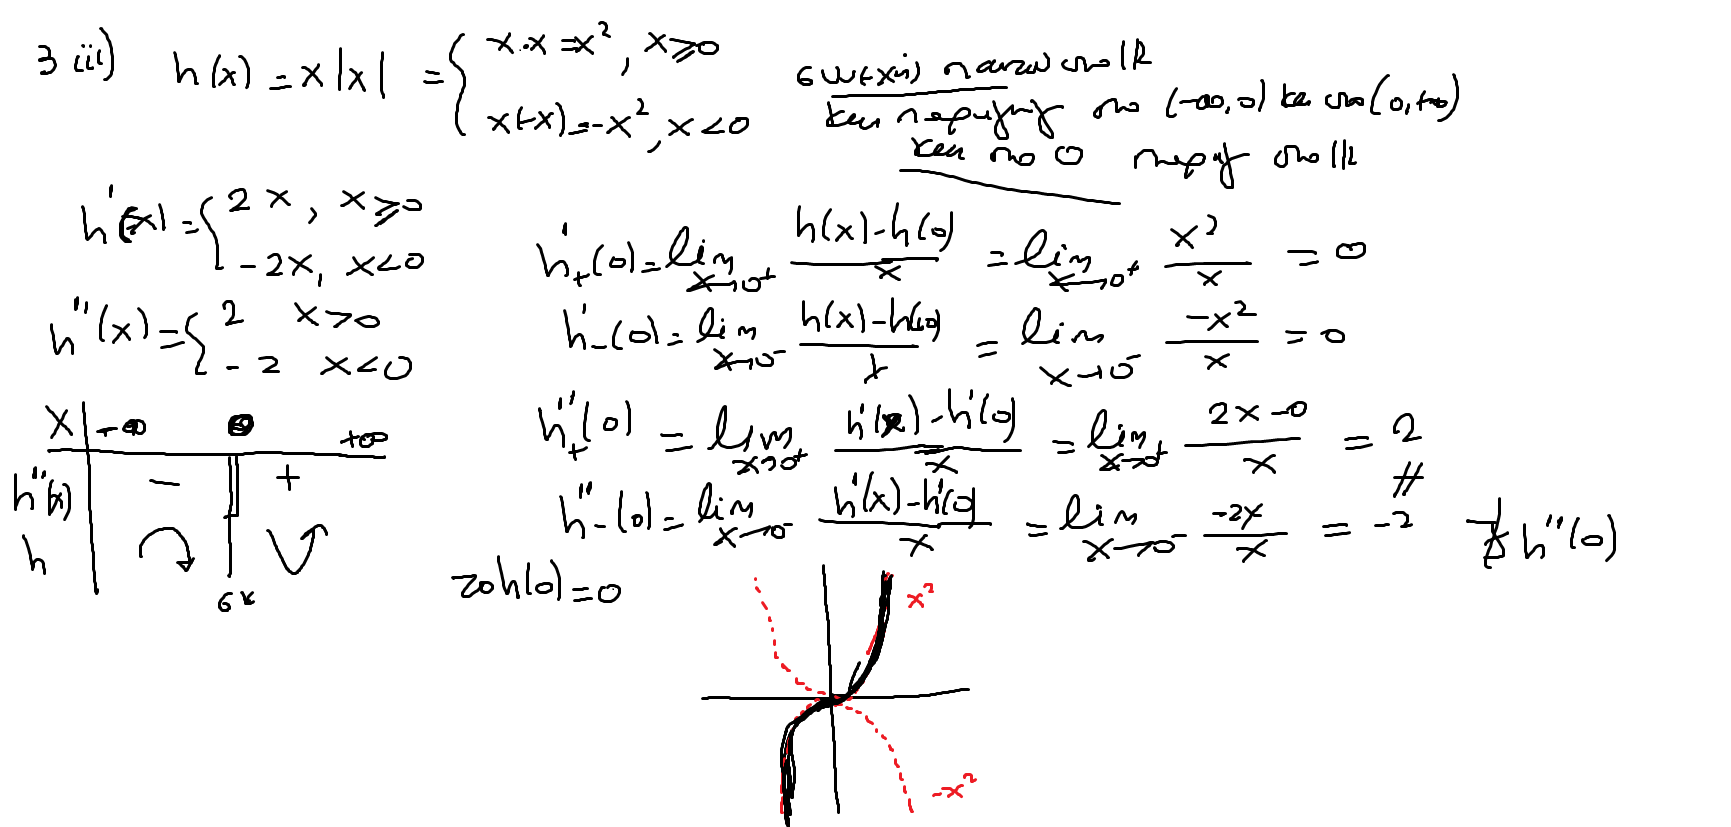 3 iii) h(x) = x|x| = { x·x = x², x ≥ 0
x(-x) = -x², x < 0
συνεχής παντού στο ℝ
και παραγ/μη στο (-∞,0) και στο (0,+∞)
και στο 0 παραγ στο ℝ
h'(x) = { 2x, x ≥ 0
-2x, x < 0
h''(x) = { 2 x > 0
-2 x < 0
h'₊(0) = lim x→0⁺ (h(x)-h(0))/x = lim x→0⁺ x²/x = 0
h'₋(0) = lim x→0⁻ (h(x)-h(0))/x = lim x→0⁻ -x²/x = 0
h''₊(0) = lim x→0⁺ (h'(x)-h'(0))/x = lim x→0⁺ (2x-0)/x = 2
≠
h''₋(0) = lim x→0⁻ (h'(x)-h'(0))/x = lim x→0⁻ -2x/x = -2 ∄ h''(0)
x -∞ 0 +∞
h''(x) - +
h
σκ
το h(0) = 0
x²
-x²